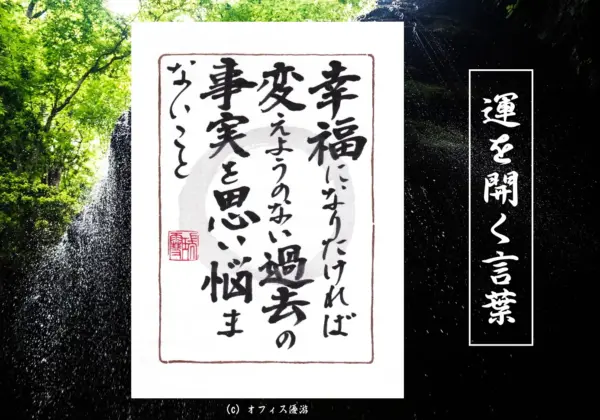 運を開く言葉
幸福になりたければ
変えようのない過去の
事実を思い悩ま
ないこと
(C) オフィス優游